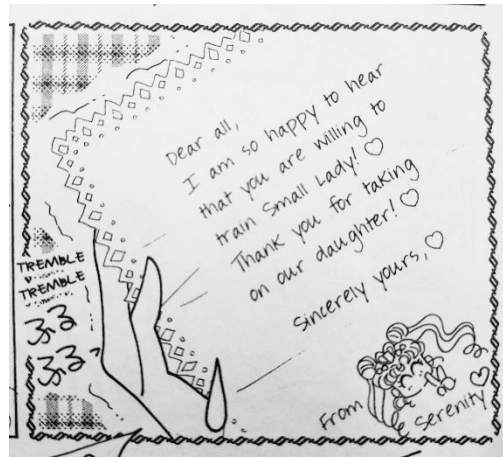 Dear all,
I am so happy to hear
that you are willing to
train Small Lady! ♡
Thank you for taking
on our daughter! ♡
Sincerely yours, ♡
TREMBLE
TREMBLE
ふる
ふる
From
Serenity ♡